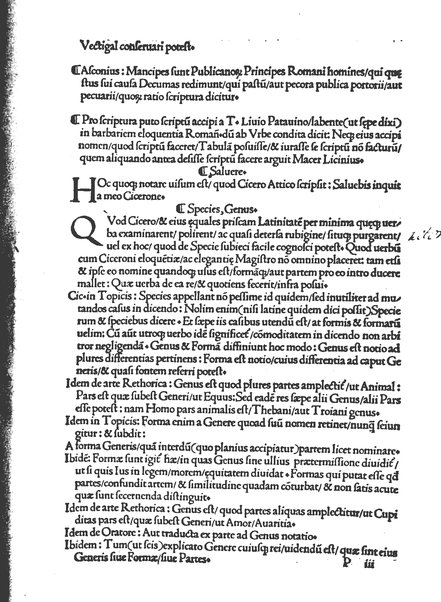 Vectigal conseruari potest.
¶ Asconius: Mancipes sunt Publicanoꝝ Principes Romani homines/qui quę
stus sui causa Decumas redimunt/qui pastū/aut pecora publica portorii/aut
pecuarii/quoꝝ ratio scriptura dicitur.
¶ Pro scriptura puto scriptū accipi a T. Liuio Patauino/labente(ut sępe dixi)
in barbariem eloquentia Roman.dū ab Vrbe condita dicit: Neqꝫ eius accipi
nomen/quod scriptū faceret/Tabulā posuisse/& iurasse se scriptū nō facturū/
quem aliquando antea desisse scriptū facere arguit Macer Licinius.
¶ Saluere.
HOc quoqꝫ notare uisum est/ quod Cicero Attico scripsit: Saluebis inquit
a meo Cicerone.
¶ Species, Genus.
QVod Cicero/& eius equales priscam Latinitatē per minima quęqꝫ uer/
ba examinarent/ polirent/ ac quasi detersa rubigine/ situqꝫ purgarent/
uel ex hoc/ quod de Specie subieci facile cognosci potest. Quod uerbū
cum Ciceroni eloquētiæ/ac elegantię Magistro nō omnino placeret: tam etsi
& ipse eo nomine quandoqꝫ usus est/formāqꝫ/aut partem pro eo intro ducere
mallet: Quæ uerba de ea re/& quotiens fecerit/infra posui.
Cic.in Topicis: Species appellant nō pessime id quidem/sed inutiliter ad mu/
tandos casus in dicendo: Nolim enim(nisi latine quidem dici possit)Specie
rum & speciebus dicere. Et sępe iis casibus utendū est/at formis & formarū
uelim: Cū aūt utroqꝫ uerbo idē significet/cōmoditatem in dicendo non arbi
tror negligendā. Genus & Formā diffiniunt hoc modo: Genus est notio ad
plures differentias pertinens: Forma est notio/cuius differentia ad caput Ge
neris/& quasi fontem referri potest.
Idem de arte Rethorica: Genus est quod plures partes amplectit/ut Animal:
Pars est quæ subest Generi/ut Equus:Sed eadē res sæpe alii Genus/alii Pars
esse potest: nam Homo pars animalis est/Thebani/aut Troiani genus.
Idem in Topicis: Forma enim a Genere quoad suū nomen retinet/nunqꝫ seiun
gitur: & subdit:
A forma Generis/quā interdū(quo planius accipiatur)partem licet nominare.
Ibidē: Formæ sunt igit hæ/in quas Genus sine ullius prætermissione diuidit/
ut si quis Ius in legem/morem/equitatem diuidat. Formas qui putat esse qd
partes/confundit artem/& similitudine quadam cōturbat/& non satis acute
quæ sunt secernenda distinguit.
Idem de arte Rethorica: Genus est/ quod partes aliquas amplectitur/ut Cupi
ditas pars est/quæ subest Generi/ut Amor/Auaritia.
Idem de Oratore: Aut traducta ex parte ad Genus notatio.
Ibidem: Tum(ut scis)explicato Genere cuiusqꝫ rei/uidendū est/ quæ sunt eius
Generis siue Formæ/siue Partes.
P iii